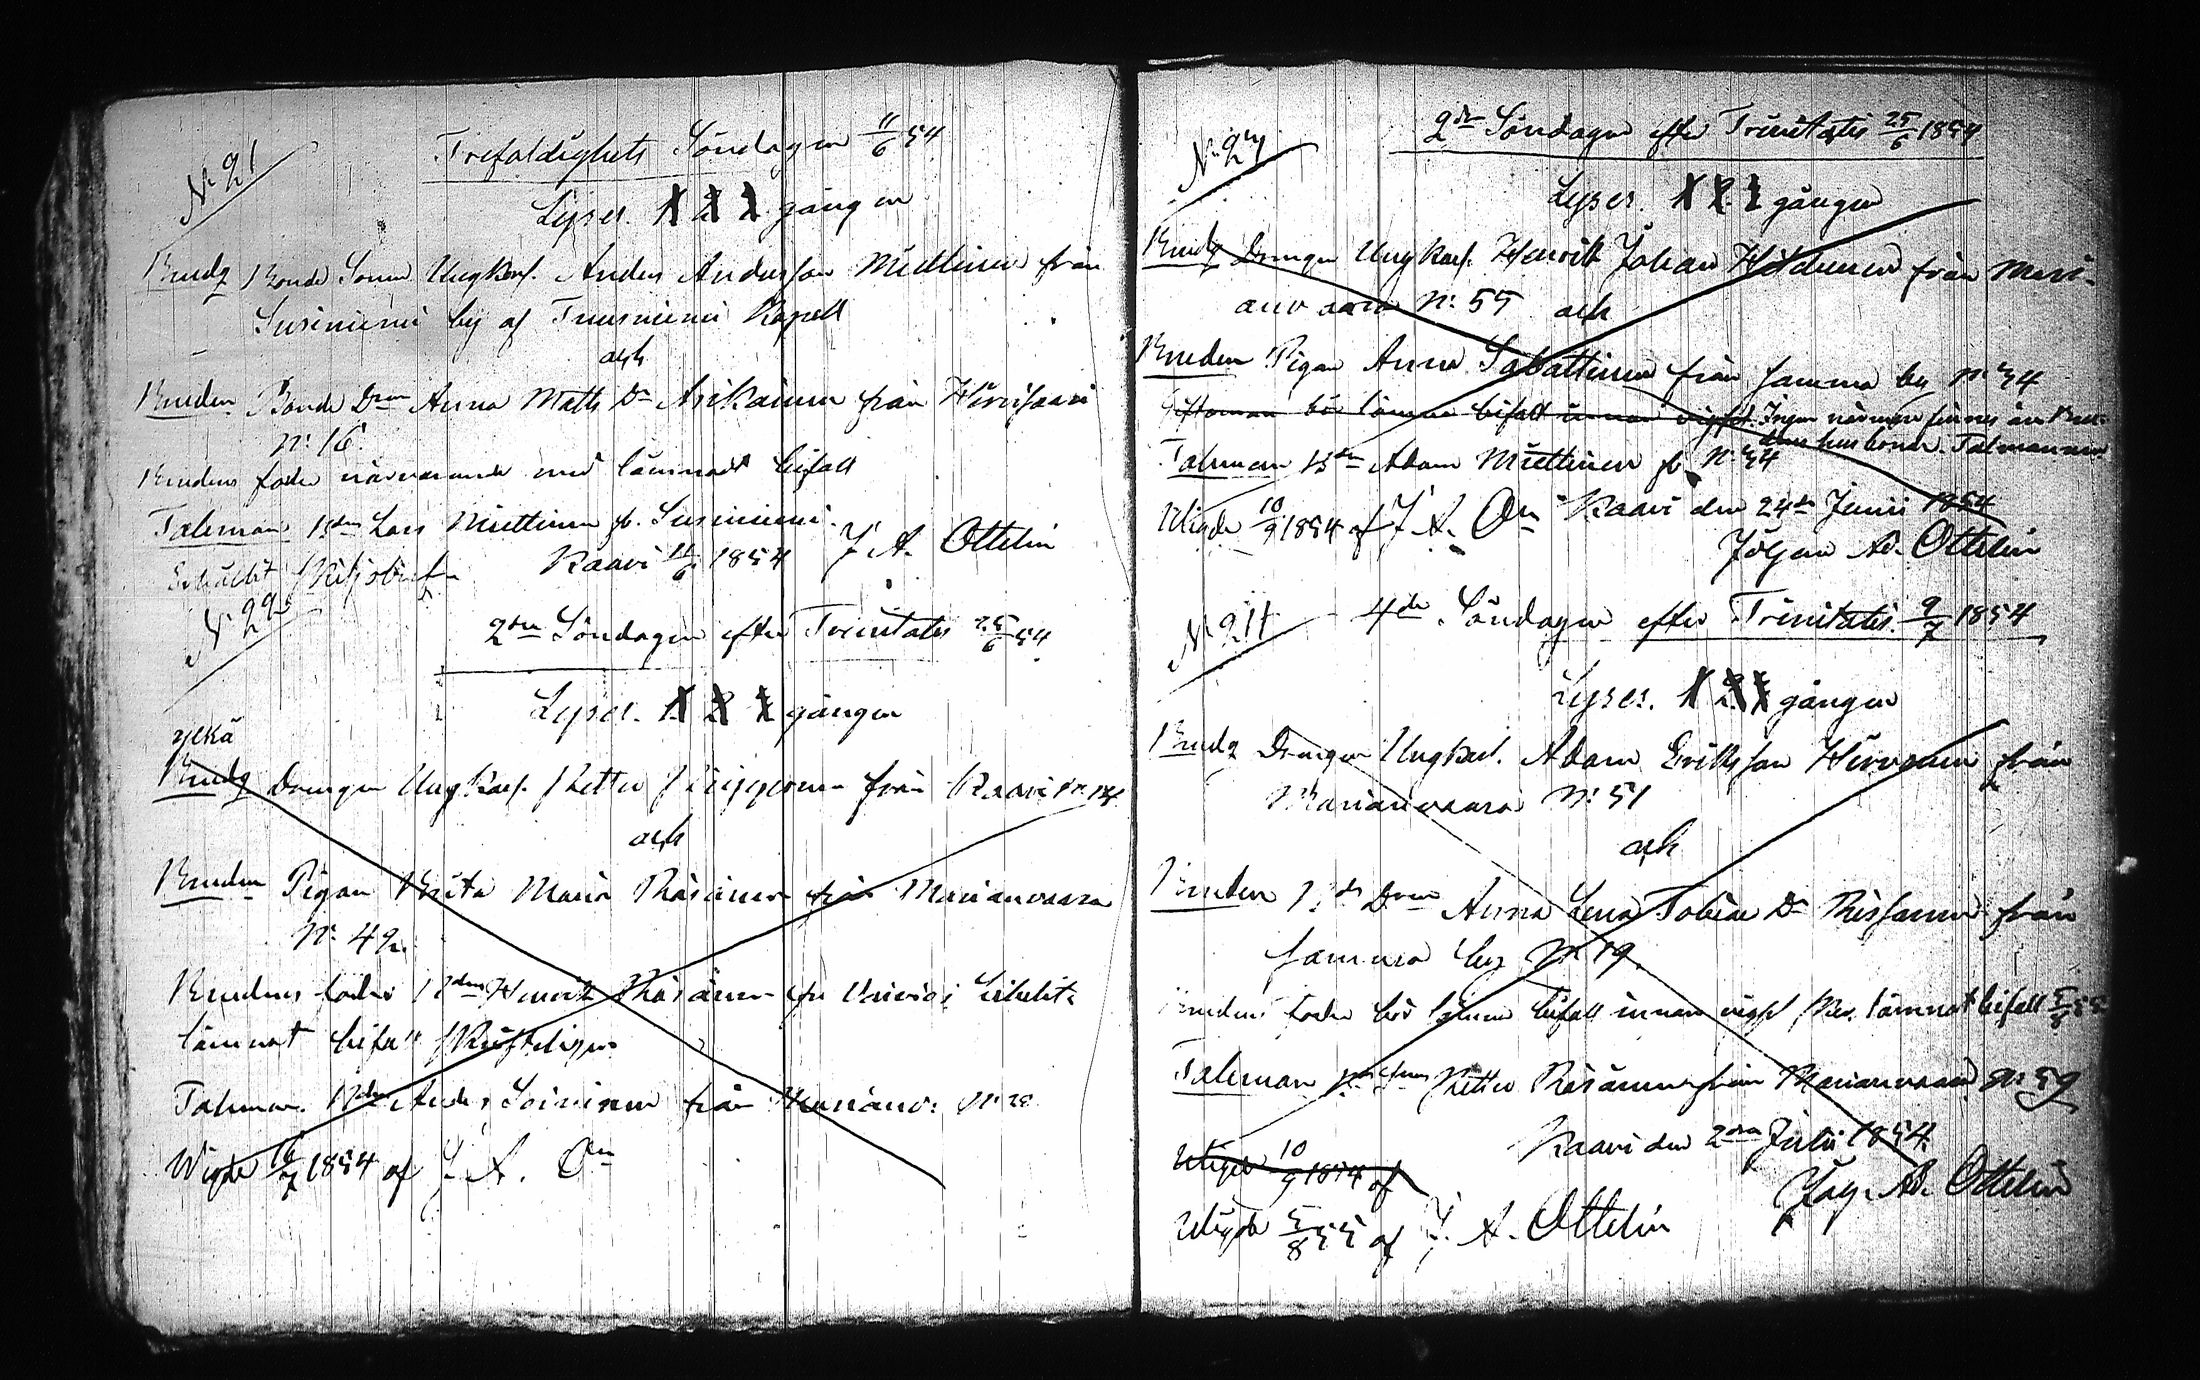 No 21
Trefaldighets Söndagen 11/6 54
Lyses. 1 2 3 gången
Brudg Bonde Sonen Ungkarl. Anders Andersson Miettinen från
Susiniemi by af Tuusniemi Kapell
och
Bruden Bonde Dren Anna Matts Dr Asikainen från Hirvisaari
No 16.
Brudens fader närvarande med lämnadt bifall
Taleman Bden Lars Miettinen fr. Susiniemi.
Kaavi 11/6 1854 J A. Ottelin
Erhållit
No 22
2dra Söndagen efter Trinitatis 25/6 54
Lyses. 1 2 3 gången
Brudg Drengen Ungkarl. Petter från Kaavi No 14
och
Bruden Pigan Brita Maria Räsänen från Marianvaara
No 42.
Brudens fader Bden Henrik Räsänen fr
lämnat bifall skriftligen
Taleman. Bden Anders Soininen från Marianv:
Wigde 16/7 1854 af J. A. On
No 23
2dra Söndagen efter Trinitatis 25/6 1854
Lyses. 1 2 3 gången
Brudg Drengen Ungkarl. Henrik Johan från Mari-
anvaara No 55 och
Bruden Pigan Anna Sabattinen från samma by No 34
Giftoman bör lämna bifall innan vigsel. Ingen närmare finnes än Bru-
dens husbonde. Talemannen
Taleman Bden Adam Miettinen fr. No 34
Wigde 10/9 1854 af J A. On Kaavi den 24de Junii 1854
Johan Ad. Ottelin
No 24 4de Söndagen efter Trinitatis. 9/7 1854
Lyses. 1 2 3 gången
Brudg Drengen Ungkarl. Adam Eriksson Hirvonen från
Marianvaara No 51
och
Bruden Bde Dren Anna Lena Tobias Dr Rissanen från
samma by No 19.
Brudens fader bör lämna bifall innan vigsel lämnat bifall 5/8 55
Taleman Petter Räsänen från Marianvaara No 59
Kaavi den 2dra Julii 1854
Wigde 10/9 1854 af Joh. Ad. Ottelin
Wigde 5/8 55 af J. A. Ottelin